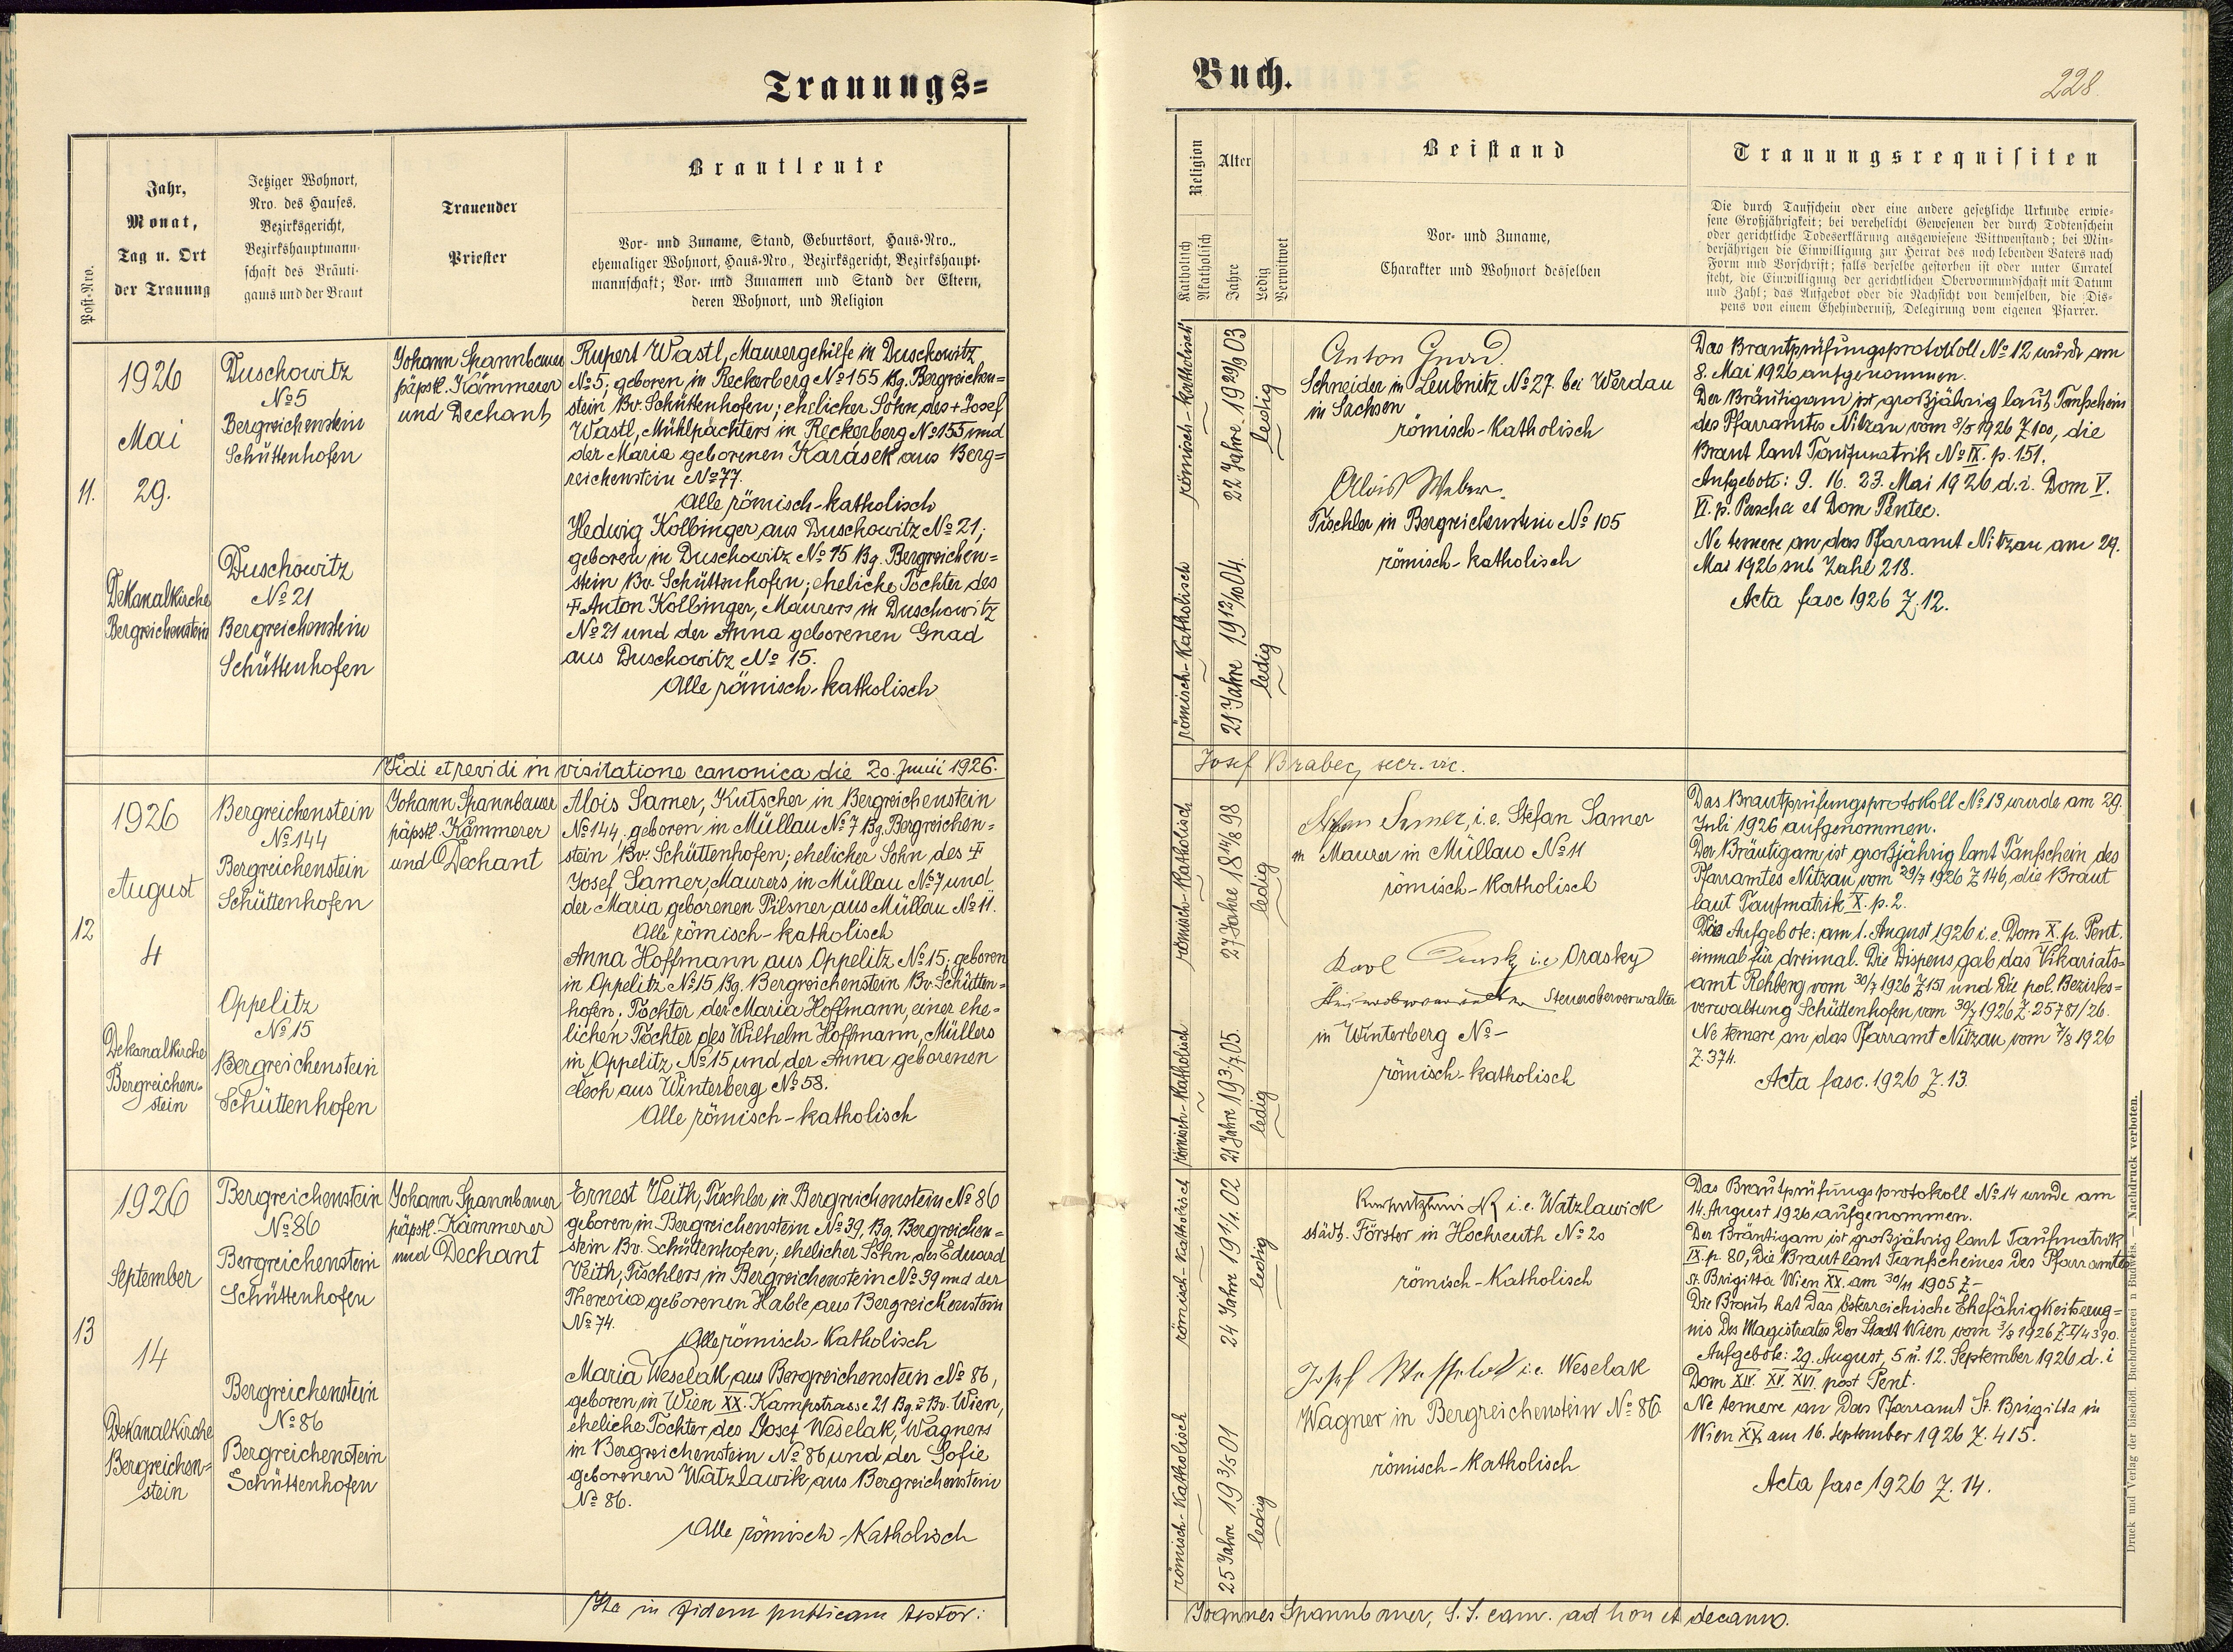 Trauungs=
Post-Nro.
Jahr,
Monat,
Tag u. Ort
der Trauung
Jetziger Wohnort,
Nro. des Hauses,
Bezirksgericht,
Bezirkshauptmann-
schaft des Bräuti-
gams und der Braut
Trauender
Priester
Brautleute
Vor- und Zuname, Stand, Geburtsort, Haus-Nro.,
ehemaliger Wohnort, Haus-Nro., Bezirksgericht, Bezirkshaupt-
mannschaft; Vor- und Zunamen und Stand der Eltern,
deren Wohnort, und Religion
11.
1926
Mai
29.
Dekanalkirche
Bergreichenstein
Duschowitz
№ 5
Bergreichenstein
Schüttenhofen
Duschowitz
№ 21
Bergreichenstein
Schüttenhofen
Johann Spannbauer
päpstl. Kämmerer
und Dechant
Rupert Wastl, Maurergehilfe in Duschowitz
№ 5; geboren in Reckerberg № 155 Bg. Bergreichen=
stein Bv. Schüttenhofen; ehelicher Sohn des + Josef
Wastl, Mühlpächters in Reckerberg № 155 und
der Maria geborenen Karásek aus Berg=
reichenstein № 77.
Alle römisch-katholisch
Hedwig Kolbinger aus Duschowitz № 21;
geboren in Duschowitz № 15 Bg. Bergreichen=
stein Bv. Schüttenhofen; eheliche Tochter des
+ Anton Kolbinger, Maurers in Duschowitz
№ 21 und der Anna geborenen Gnad
aus Duschowitz № 15.
Alle römisch-katholisch
Vidi et revidi in visitatione canonica die 20. Junii 1926.
12
1926
August
4
Dekanalkirche
Bergreichen-
stein
Bergreichenstein
№ 144
Bergreichenstein
Schüttenhofen
Oppelitz
№ 15
Bergreichenstein
Schüttenhofen
Johann Spannbauer
päpstl. Kämmerer
und Dechant
Alois Samer, Kutscher in Bergreichenstein
№ 144; geboren in Müllau № 7 Bg. Bergreichen=
stein Bv. Schüttenhofen; ehelicher Sohn des +
Josef Samer, Maurers in Müllau № 7 und
der Maria geborenen Pilsner aus Müllau № 11.
Alle römisch-katholisch
Anna Hoffmann aus Oppelitz № 15; geboren
in Oppelitz № 15 Bg. Bergreichenstein Bv. Schütten=
hofen. Tochter der Maria Hoffmann, einer ehe=
lichen Tochter des Wilhelm Hoffmann, Müllers
in Oppelitz № 15 und der Anna geborenen
aus Winterberg № 58.
Alle römisch-katholisch
13
1926
September
14
Dekanalkirche
Bergreichen=
stein
Bergreichenstein
№ 86
Bergreichenstein
Schüttenhofen
Bergreichenstein
№ 86
Bergreichenstein
Schüttenhofen
Johann Spannbauer
päpstl. Kämmerer
und Dechant
Ernest Veith, Tischler in Bergreichenstein № 86
geboren in Bergreichenstein № 39, Bg. Bergreichen=
stein Bv. Schüttenhofen; ehelicher Sohn des Eduard
Veith, Tischlers in Bergreichenstein № 39 und der
Theresia geborenen Hable aus Bergreichenstein
№ 74.
Alle römisch-katholisch
Maria Weselak aus Bergreichenstein № 86,
geboren in Wien XX. Kampstrasse 21 Bg. u Bv. Wien,
eheliche Tochter des Josef Weselak, Wagners
in Bergreichenstein № 86 und der Sofie
geborenen Watzlawik aus Bergreichenstein
№ 86.
Alle römisch-katholisch
Ita in fidem publicam testor:
Buch.
228
Religion
Katholisch
Akatholisch
Alter
Jahre
Ledig
Verwitwet
Beistand
Vor- und Zuname,
Charakter und Wohnort desselben
Trauungsrequisiten
Die durch Taufschein oder eine andere gesetzliche Urkunde erwie-
sene Großjährigkeit; bei verehelicht Gewesenen der durch Todtenschein
oder gerichtliche Todeserklärung ausgewiesene Wittwenstand; bei Min-
derjährigen die Einwilligung zur Heirat des noch lebenden Vaters nach
Form und Vorschrift; falls derselbe gestorben ist oder unter Curatel
steht, die Einwilligung der gerichtlichen Obervormundschaft mit Datum
und Zahl; das Aufgebot oder die Nachsicht von demselben, die Dis-
pens von einem Ehehinderniß, Delegirung vom eigenen Pfarrer.
römisch-katholisch
22 Jahre 19 29/9 03
ledig
römisch-katholisch
21 Jahre 19 12/10 04.
ledig
Anton Gnad
Schneider in Leubnitz № 27 bei Werdau
in Sachsen
römisch-katholisch
Alois Weber
Tischler in Bergreichenstein № 105
römisch-katholisch
Das Brautprüfungsprotokoll № 12 wurde am
8. Mai 1926 aufgenommen.
Der Bräutigam ist großjährig laut Taufschein
des Pfarramtes Nitzau vom 8/5 1926 Z 100, die
Braut laut Taufmatrik № IX. p. 151.
Aufgebote: 9. 16. 23. Mai 1926 d. i. Dom V.
VI. p. Pascha et Dom Pentec.
Ne temere an das Pfarramt Nitzau am 29.
Mai 1926 sub Zahl 218.
Acta fasc 1926 Z. 12.
Josef Brabec, secr. vic.
römisch-katholisch
27 Jahre 18 14/8 98
ledig
römisch-katholisch
21 Jahre 19 3/7 05.
ledig
Stefan Samer, i. e. Stefan Samer
Maurer in Müllau № 11
römisch-katholisch
Karl Orasky i. e. Orasky
Steueroberverwalter
in Winterberg № -
römisch-katholisch
Das Brautprüfungsprotokoll № 13 wurde am 29.
Juli 1926 aufgenommen.
Der Bräutigam ist großjährig laut Taufschein des
Pfarramtes Nitzau vom 29/7 1926 Z 146, die Braut
laut Taufmatrik X. p. 2.
Die Aufgebote: am 1. August 1926 i. e. Dom X. p. Pent.
einmal für dreimal. Die Dispens gab das Vikariats=
amt Rehberg vom 30/7 1926 Z 151 und die pol. Bezirks=
verwaltung Schüttenhofen vom 30/7 1926 Z. 25781/26.
Ne temere an das Pfarramt Nitzau vom 7/8 1926
Z. 374.
Acta fasc. 1926 Z. 13.
römisch-katholisch
24 Jahre 19 11/1. 02
ledig
römisch-katholisch
25 Jahre 19 3/5 01
ledig
i. e. Watzlawick
städt. Förster in Hochreuth № 20
römisch-katholisch
Josef i. e. Weselak
Wagner in Bergreichenstein № 86
römisch-katholisch
Das Brautprüfungsprotokoll № 14 wurde am
14. August 1926 aufgenommen.
Der Bräutigam ist großjährig laut Taufmatrik
IX. p. 80, die Braut laut Taufscheines des Pfarramtes
St. Brigitta Wien XX. am 30/11 1905 Z -
Die Braut hat das österreichische Ehefähigkeitszeug=
nis des Magistrates der Stadt Wien vom 3/9 1926 Z. II/4390.
Aufgebote: 29. August, 5 u. 12. September 1926 d. i
Dom XIV. XV. XVI. post Pent.
Ne temere an das Pfarramt St. Brigitta in
Wien XX. am 16. September 1926 Z. 415.
Acta fasc 1926 Z. 14.
Joannes Spannbauer, S. S. cam. ad hon et decanus.
Druck und Verlag der bischöfl. Buchdruckerei in Budweis. — Nachdruck verboten.